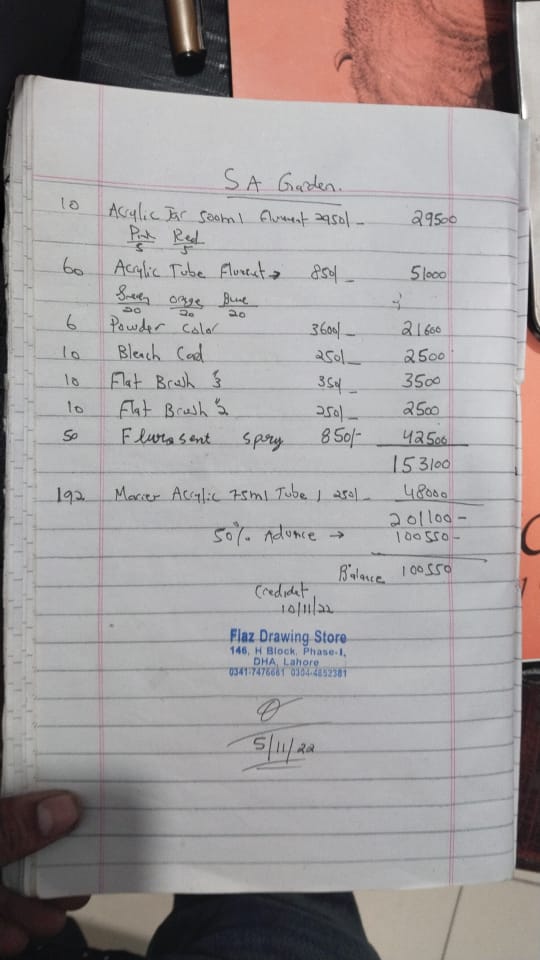 S A Garden.
10 Acrylic Jar 500ml Flurecent 2950/- 29500
Pink Red
5 5
60 Acrylic Tube Flurecent → 850/- 51000
Green orange Blue
20 20 20
6 Powder color 3600/- 21600
10 Bleach Card 250/- 2500
10 Flat Brush 3 350/- 3500
10 Flat Brush 2 250/- 2500
50 Flurosent spry 850/- 42500
153100
192 Marier Acrylic 75ml Tube / 250/- 48000
201100-
50% Advance → 100550-
Balance 100550
Credidet
10/11/22
Fiaz Drawing Store
146, H Block, Phase-I,
DHA, Lahore
0341-7476661 0304-4852381
5/11/22